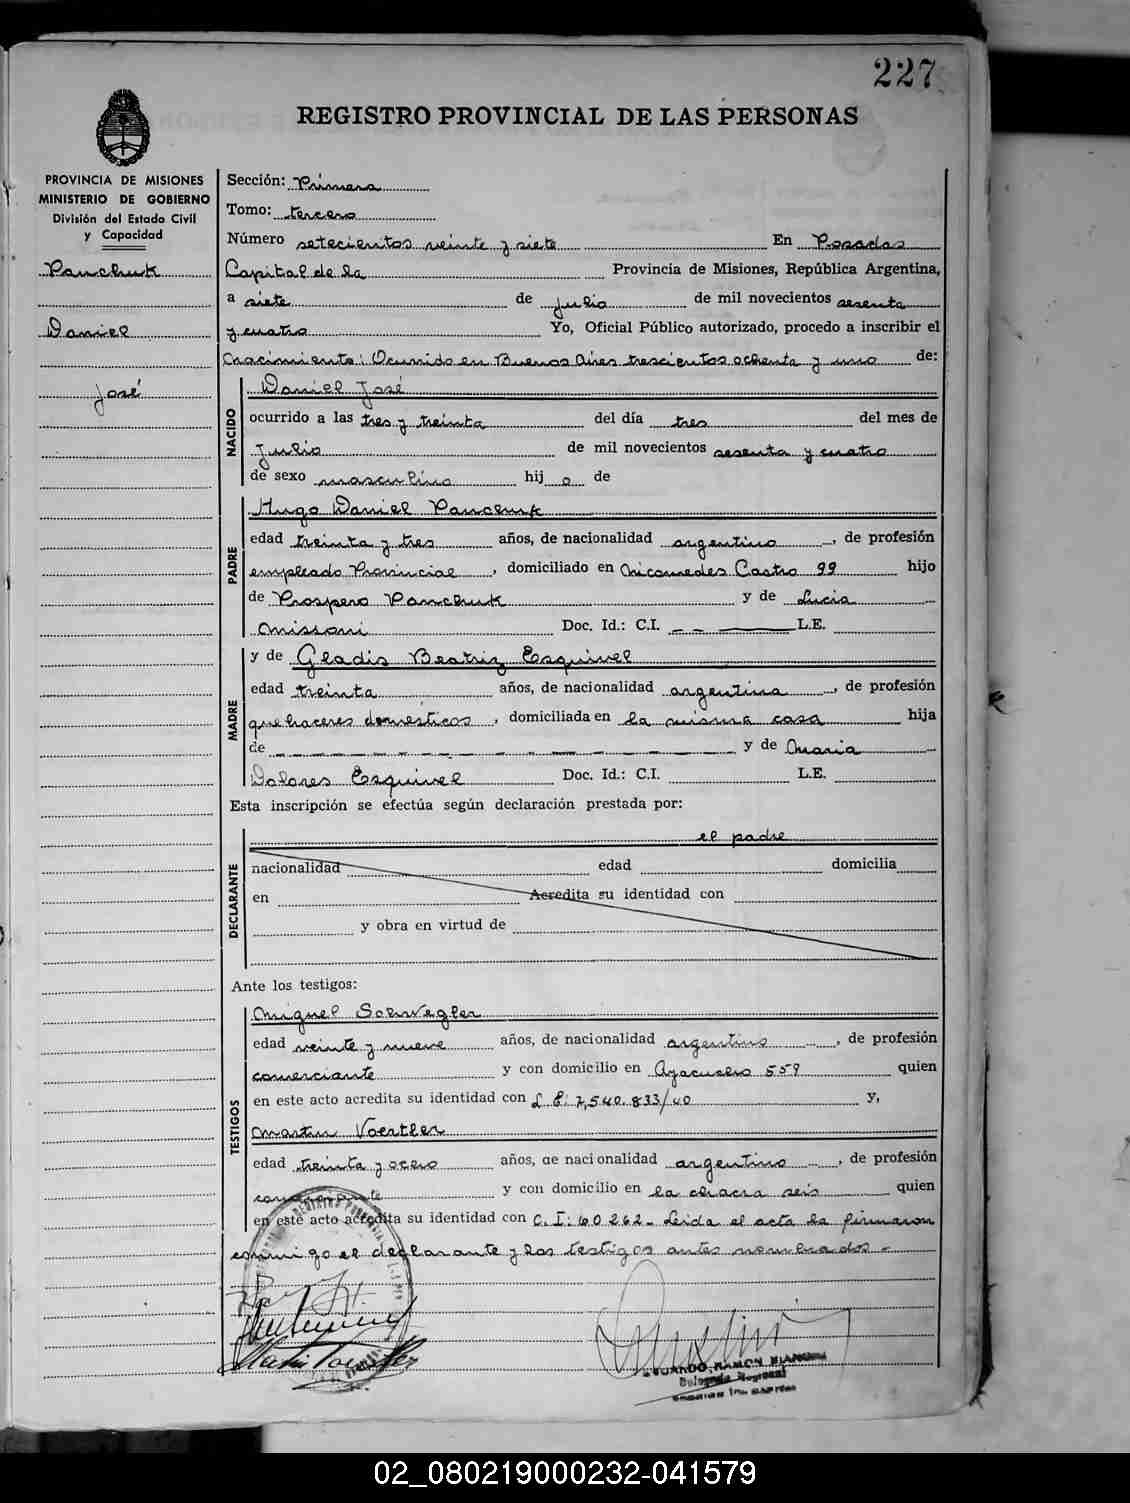 227
REGISTRO PROVINCIAL DE LAS PERSONAS
PROVINCIA DE MISIONES
MINISTERIO DE GOBIERNO
División del Estado Civil
y Capacidad
Panchuk
Daniel
José
Sección: Primera
Tomo: tercero
Número setecientos veinte y siete En Posadas
Capital de la Provincia de Misiones, República Argentina,
a siete de Julio de mil novecientos sesenta
y cuatro Yo, Oficial Público autorizado, procedo a inscribir el
Nacimiento: Ocurrido en Buenos Aires trescientos ochenta y uno de:
NACIDO
Daniel José
ocurrido a las tres y treinta del día tres del mes de
Julio de mil novecientos sesenta y cuatro
de sexo masculino hij o de
PADRE
Hugo Daniel Panchuk
edad treinta y tres años, de nacionalidad argentino, de profesión
empleado Provincial, domiciliado en Nicomedes Castro 99 hijo
de Prospero Panchuk y de Lucia
Missoni Doc. Id.: C.I. L.E.
MADRE
y de Gladis Beatriz Esquivel
edad treinta años, de nacionalidad argentina, de profesión
quehaceres domésticos, domiciliada en la misma casa hija
de y de Maria
Dolores Esquivel Doc. Id.: C.I. L.E.
Esta inscripción se efectúa según declaración prestada por:
DECLARANTE
el padre
nacionalidad edad domicilia
en Acredita su identidad con
y obra en virtud de
Ante los testigos:
TESTIGOS
Miguel Schwegler
edad veinte y nueve años, de nacionalidad argentino, de profesión
comerciante y con domicilio en Ayacucho 559 quien
en este acto acredita su identidad con L E: 7,540.833/40 y,
Martin Voertler
edad treinta y ocho años, de nacionalidad argentino, de profesión
comerciante y con domicilio en la chacra seis quien
en este acto acredita su identidad con C. I: 60262 - Leida el acta la firmaron
conmigo el declarante y los testigos antes nombrados -
RAMON BIANCHI
02_080219000232-041579